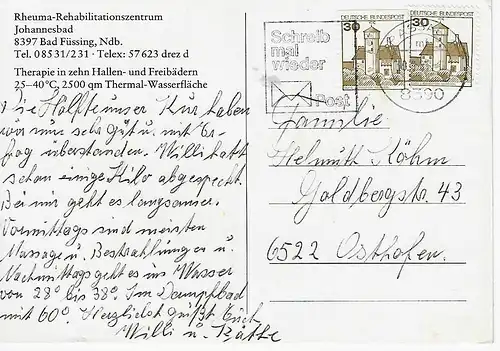 Rheuma-Rehabilitationszentrum
Johannesbad
8397 Bad Füssing, Ndb.
Tel. 08531/231 · Telex: 57623 drez d
Therapie in zehn Hallen- und Freibädern
25–40°C, 2500 qm Thermal-Wasserfläche
Die Hälfte unser Kur haben
wir nun sehr gut u. mit Er-
folg überstanden. Willi hatt
schon einige Kilo abgespeckt.
Bei mir geht es langsamer.
Vormittags sind meisten
Massage u. Bestrahlungen u.
Nachmittags geht es ins Wasser
von 28° bis 38°. Im Dampfbad
mit 60°. Herzlichst grüßt Euch
Willi u. Käthe
Schreib
mal
wieder
Post
30 DEUTSCHE BUNDESPOST
30 DEUTSCHE BUNDESPOST
8390
Familie
Helmutt Köhm
Goldbergstr. 43
6522 Osthofen